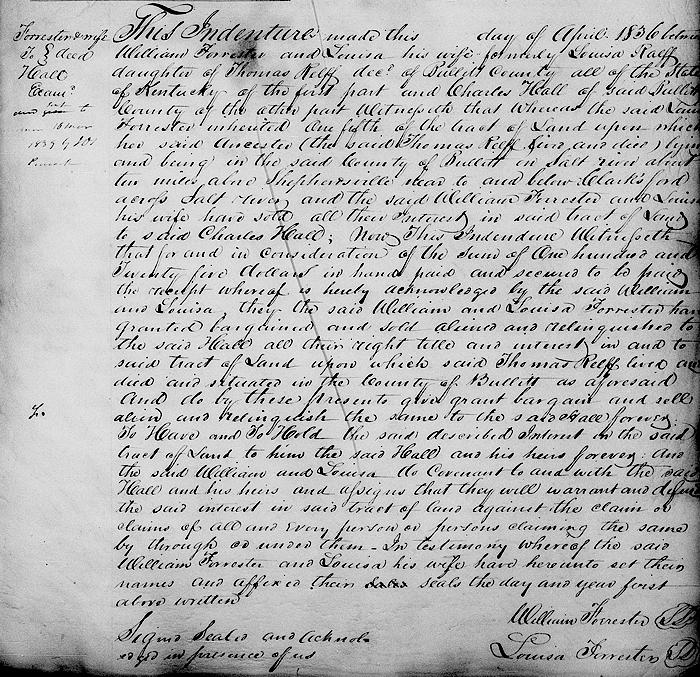 Forrester & wife
To } deed
Hall
Exam.d
This Indenture made this day of April 1836 between
William Forrester and Louisa his wife formerly Louisa Relff
daughter of Thomas Relff dec.d of Bullitt County all of the State
of Kentucky of the first part and Charles Hall of said Bullitt
County of the other part Witnesseth that Whereas the said Louisa
Forrester inherited One fifth of the tract of Land upon which
her said Ancestor (the said Thomas Relff lived and died) lying
and being in the said County of Bullitt on Salt river about
ten miles above Shepherdsville near to and below Clark's ford
across Salt river, and the said William Forrester and Louisa
his wife have sold all their Interest in said tract of Land
to said Charles Hall; Now This Indenture Witnesseth
that for and in consideration of the Sum of One hundred and
Twenty five dollars in hand paid and secured to be paid
the receipt whereof is hereby acknowledged by the said William
and Louisa, they the said William and Louisa Forrester have
granted bargained and sold aliened and relinquished to
the said Hall all their right title and interest in and to
said tract of Land upon which said Thomas Relff lived and
died and situated in the County of Bullitt as aforesaid
And do by these presents give grant bargain and sell
alien and relinquish the same to the said Hall forever.
To Have and To Hold the said described Interest in the said
tract of Land to him the said Hall and his heirs forever: And
the said William and Louisa do Covenant to and with the said
Hall and his heirs and assigns that they will warrant and defend
the said interest in said tract of land against the claim or
claims of all and every person or persons claiming the same
by through or under them - In testimony whereof the said
William Forrester and Louisa his wife have hereunto set their
names and affixed their seals the day and year first
above written
William Forrester
Louisa Forrester
Signed Sealed and Acknowl
edged in presence of us